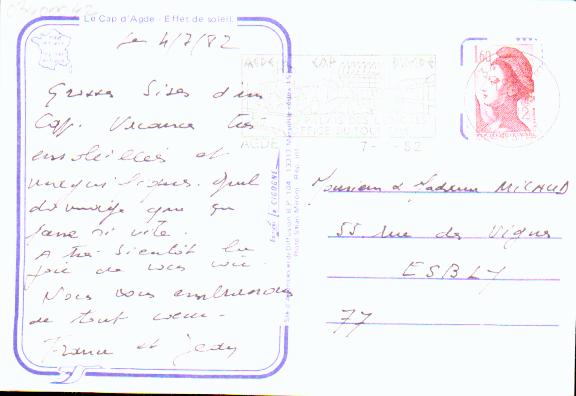 Le Cap d'Agde - Effet de soleil.
le 4/7/82
1,60
AGDE CAP D'AGDE
AGDE
7- -82
Grosses bises d'un
Cap. Vacances très
ensoleillées et
magnifiques. Quel
dommage que ça
passe si vite.
A très bientôt la
joie de vous voir.
Nous vous embrassons
de tout cœur.
France et Jean
Monsieur & Madame MICAUD
55 rue des Vignes
ESBLY
77